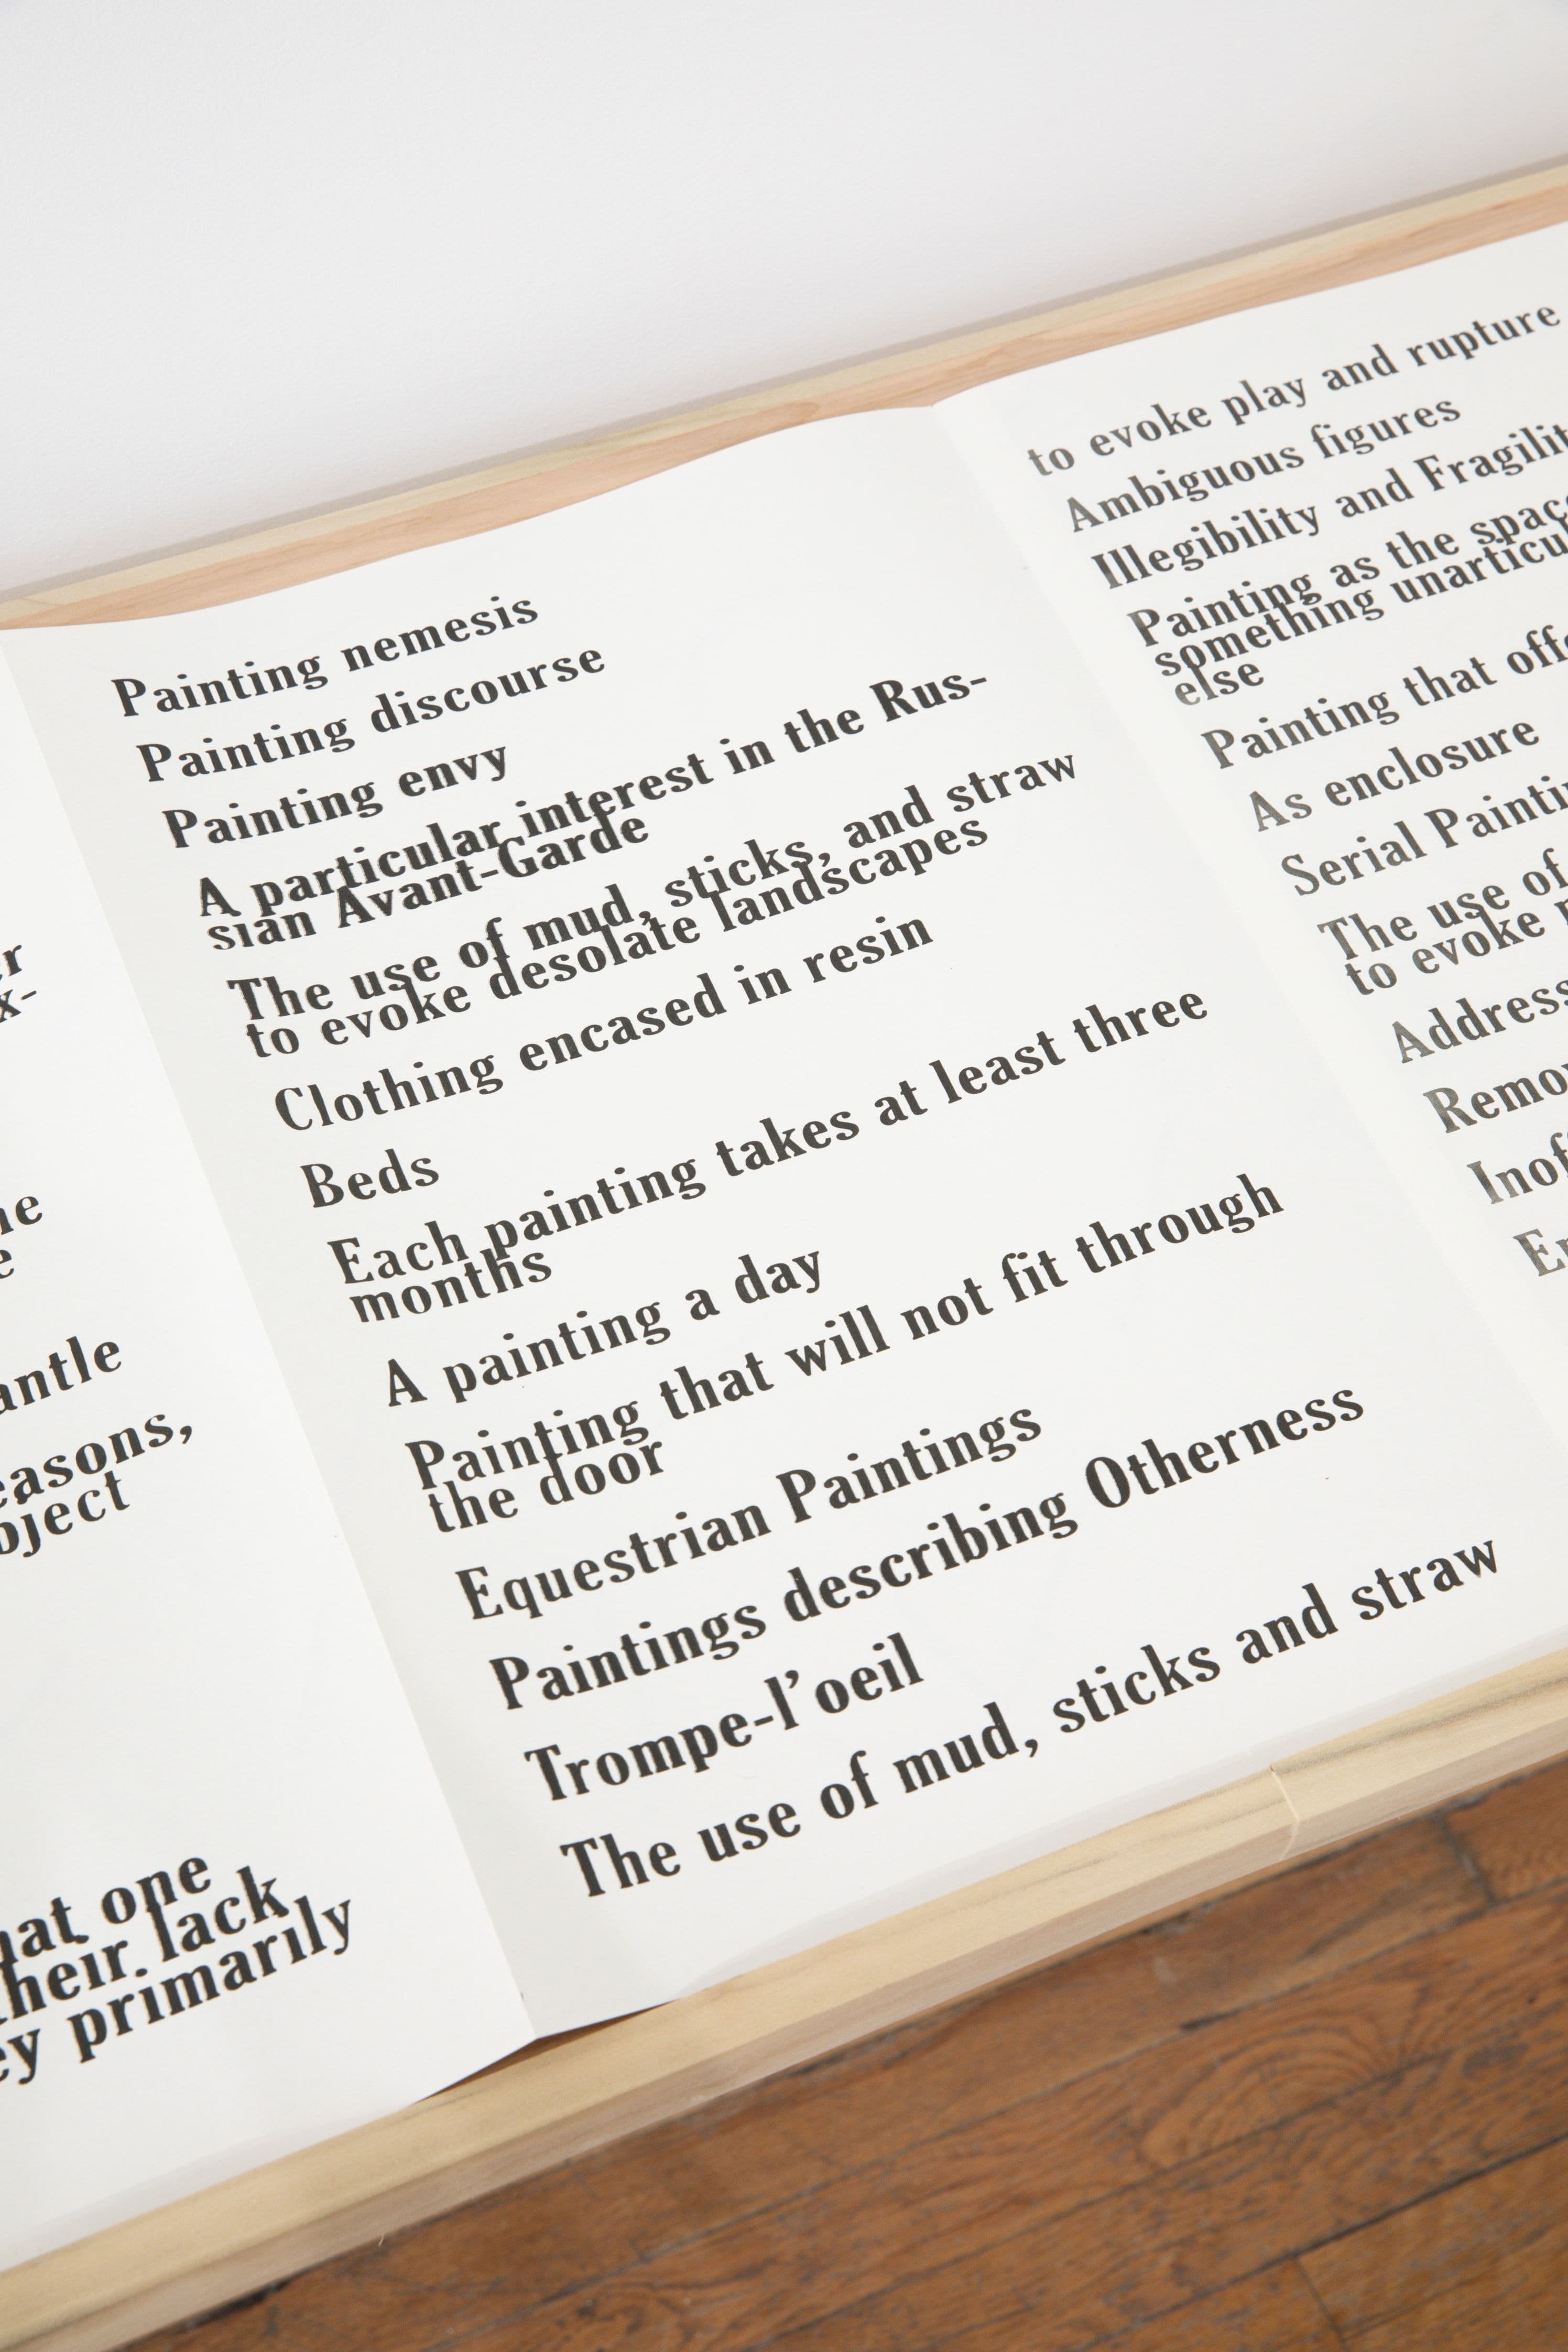 easons,
one
lack
primarily
Painting nemesis
Painting discourse
Painting envy
A particular interest in the Rus-
sian Avant-Garde
The use of mud, sticks, and straw
to evoke desolate landscapes
Clothing encased in resin
Beds
Each painting takes at least three
months
A painting a day
Painting that will not fit through
the door
Equestrian Paintings
Paintings describing Otherness
Trompe-l'oeil
The use of mud, sticks and straw
to evoke play and rupture
Ambiguous figures
Illegibility and
Painting as the
something
else
Painting that
As enclosure
Serial
The use of
to evoke